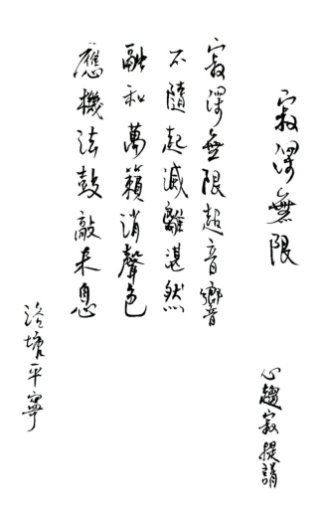 寂無限
心趨寂提誦
寂無限超音響
不隨起滅離湛然
融和萬籟消聲色
應機法鼓敲未息
塘平寧